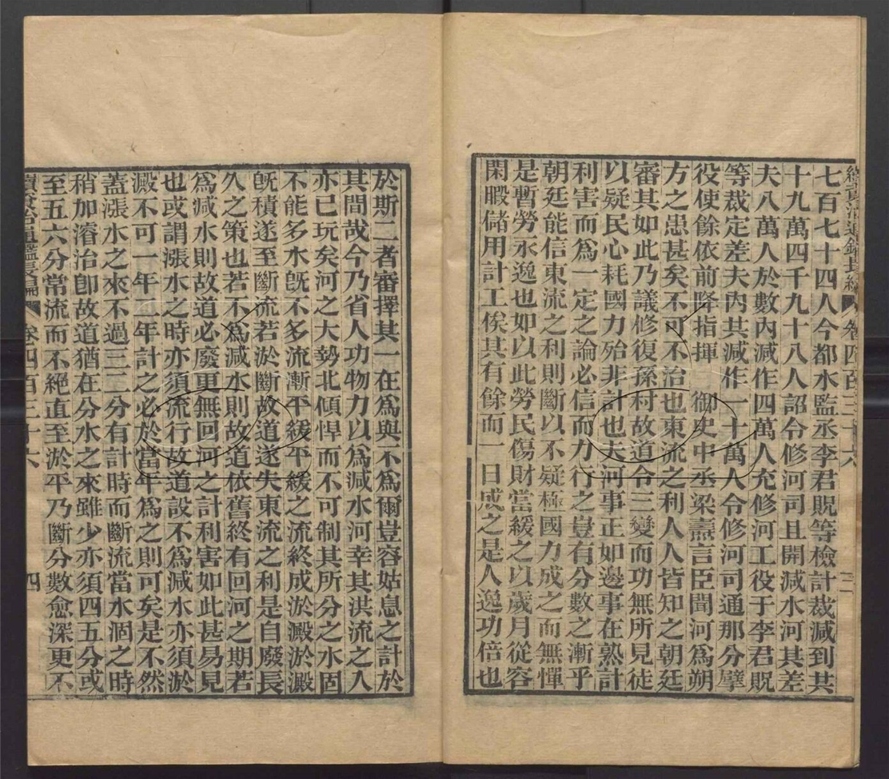 續資治通鑑長編 卷四百三十六 三
七百七十四人今都水監丞李君貺等檢計裁減到共
十九萬四千九十八人詔令修河司且開減水河其差
夫八萬人於數內減作四萬人充修河工役于李君貺
等裁定差夫內共減作一十萬人令修河司通那分擘
役使餘依前降指揮 御史中丞梁燾言臣聞河爲朔
方之患甚矣不可不治也東流之利人人皆知之朝廷
審其如此乃議修復孫村故道令三變而功無所見徒
以疑民心耗國力殆非計也夫河事正如邊事在熟計
利害而爲一定之論必信而力行之豈有分數之漸乎
朝廷能信東流之利則斷以不疑極國力成之而無憚
是暫勞永逸也如以此勞民傷財當緩之以歲月從容
閑暇儲用計工俟其有餘而一日成之是人逸功倍也
於斯二者審擇其一在爲與不爲爾豈容姑息之計於
其間哉今乃省人功物力以爲減水河幸其淇流之入
亦已玩矣河之大勢北傾悍而不可制其所分之水固
不能多水既不多流漸平緩平緩之流終成淤澱淤澱
既積遂至斷流若淤斷故道遂失東流之利是自廢長
久之策也若不爲減水則故道依舊終有回河之期若
爲減水則故道必廢更無回河之計利害如此甚易見
也或謂漲水之時亦須流行故道設不爲減水亦須淤
澱不可一年二年計之必於當年爲之則可矣是不然
蓋漲水之來不過三二分有計時而斷流當水涸之時
稍加濬治卽故道猶在分水之來雖少亦須四五分或
至五六分當流而不絕直至淤平乃斷分數愈深更不
續資治通鑑長編 卷四百三十六 四